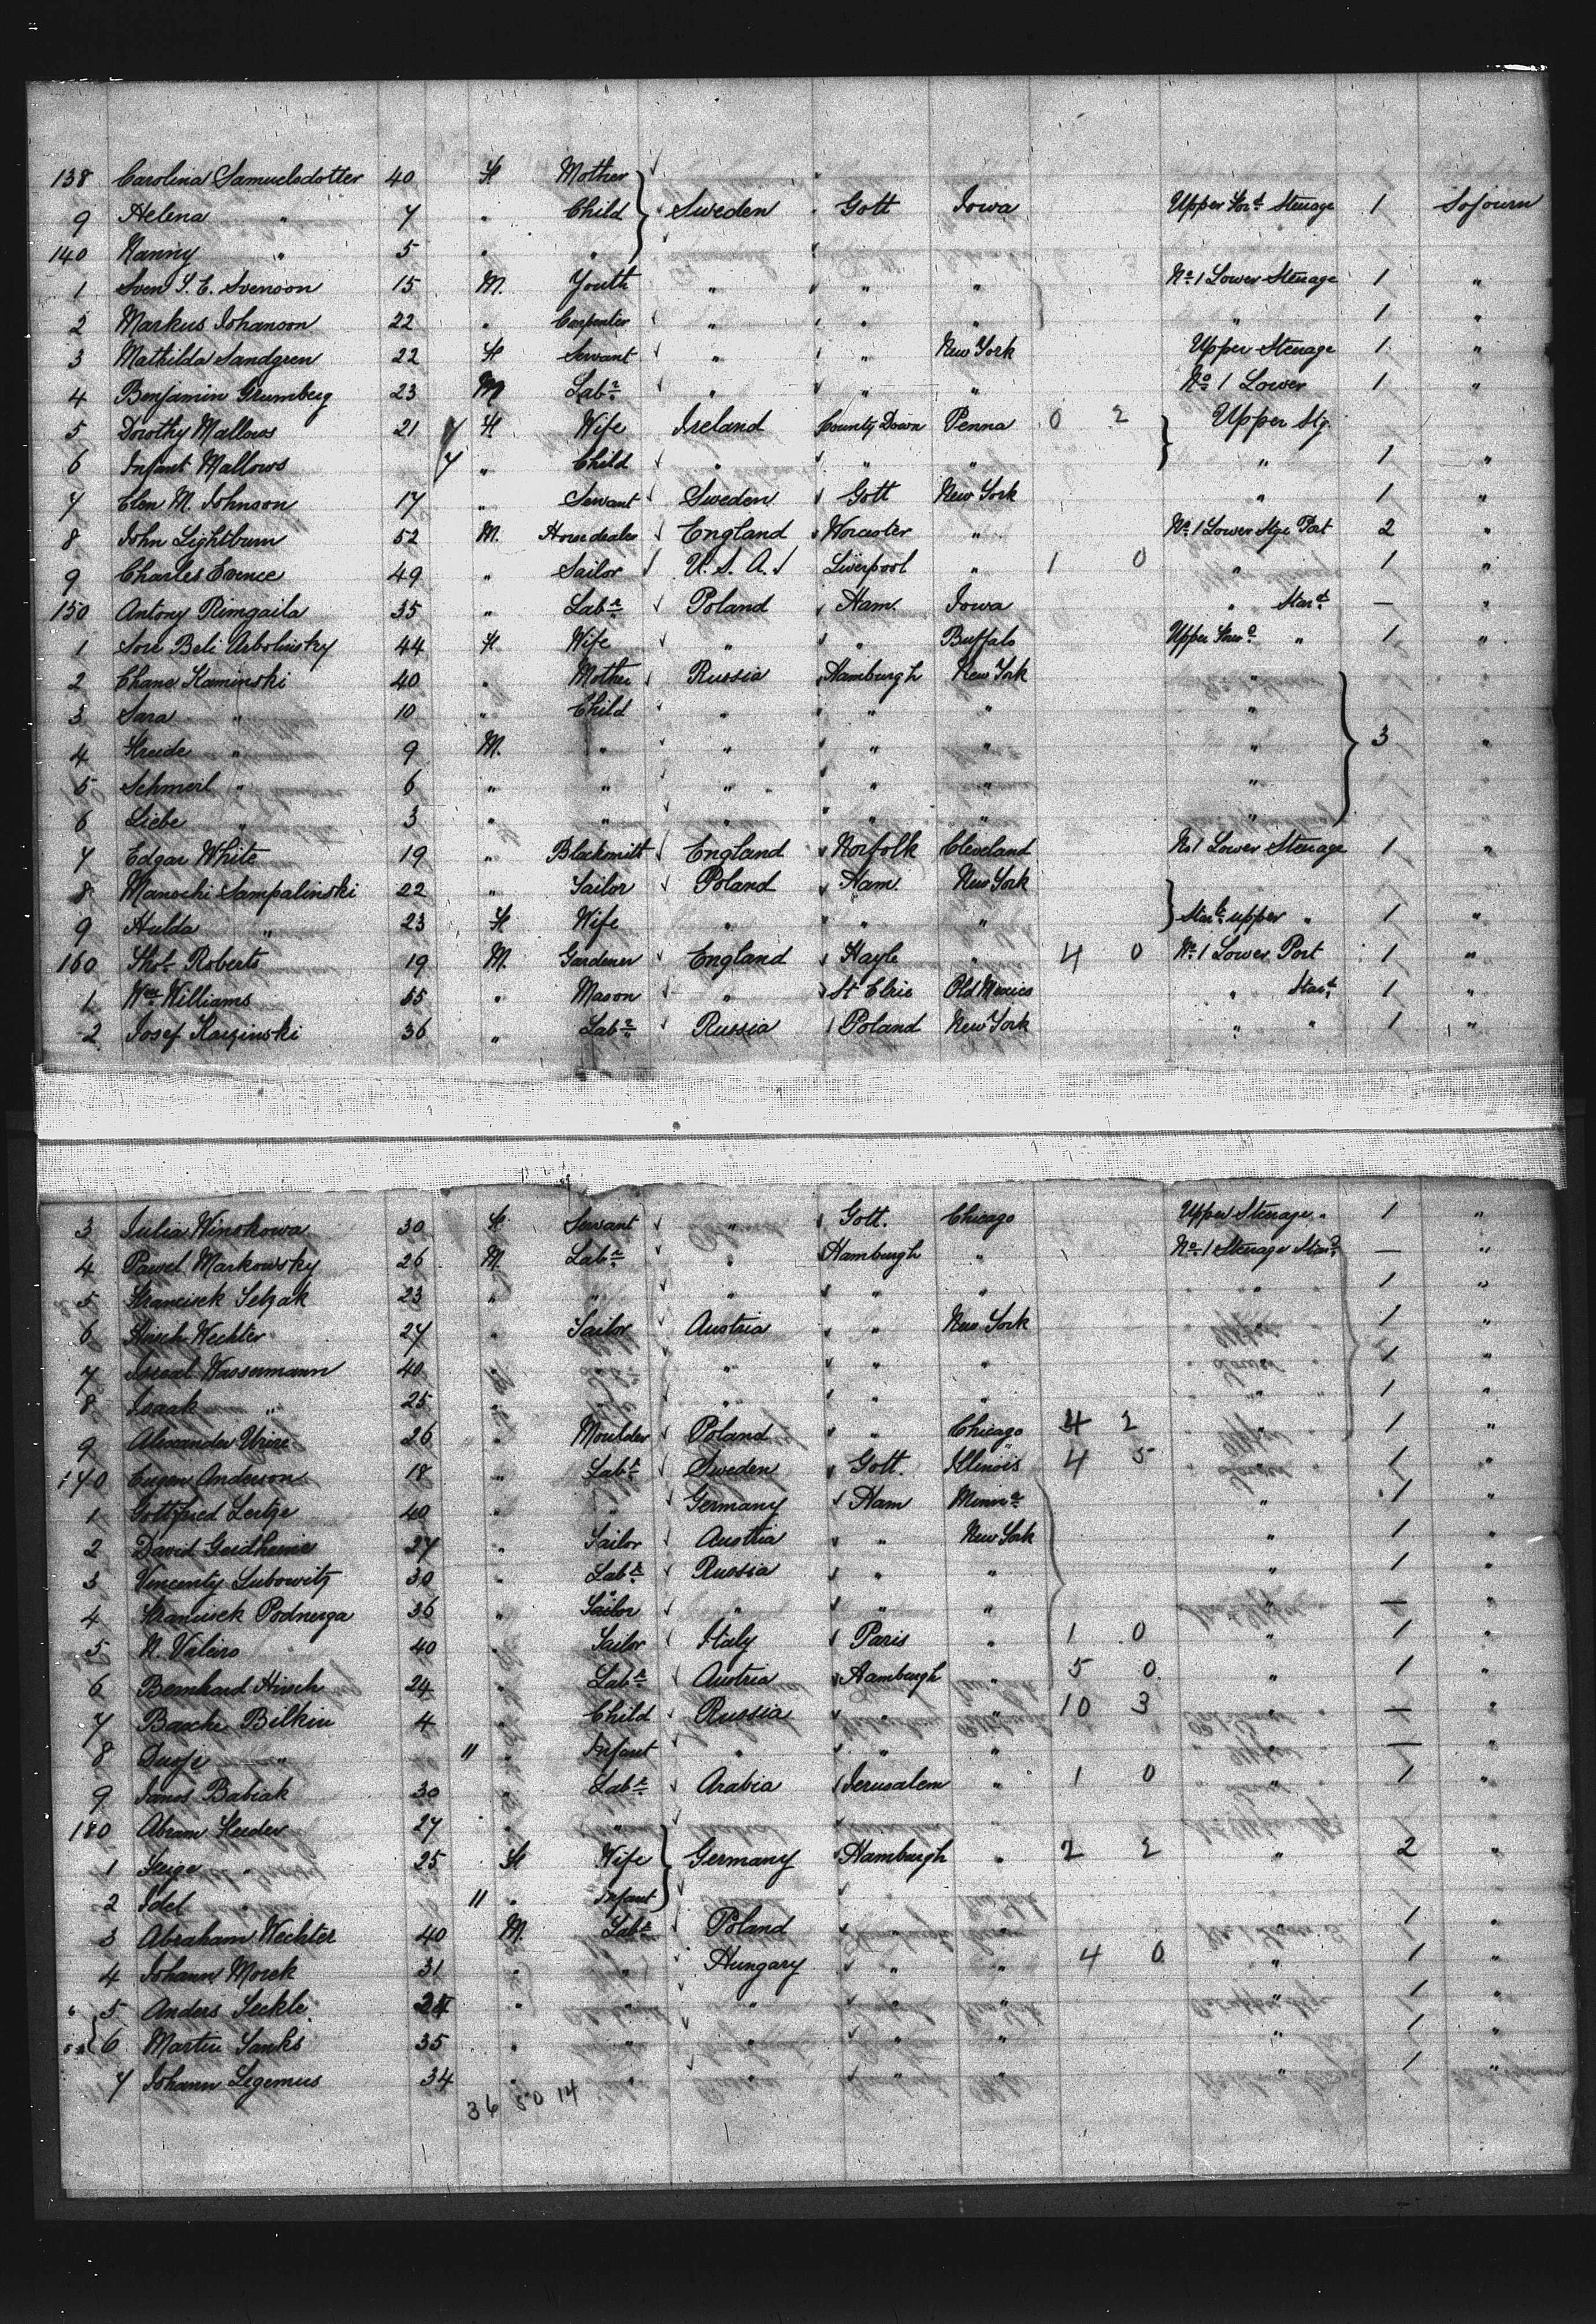 138 Carolina Samuelsdotter 40 F Mother
9 Helena " 7 " Child Sweden Gott Iowa Upper For^d Sterage 1 Sojourn
140 Nanny " 5 " "
1 Sven S. E. Svenson 15 M. Youth " " " No 1 Lower Sterage 1 "
2 Markus Johanson 22 " Carpenter " " " " 1 "
3 Mathilda Sandgren 22 F Servant " " New York Upper Sterage 1 "
4 Benjamin Grumberg 23 M Lab^r " " " No 1 Lower 1 "
5 Dorothy Mallows 21 F Wife Ireland County Down Penna 0 2 Upper Stg.
6 Infant Mallows 7 " Child " " " " 1 "
7 Elen M. Johnson 17 " Servant Sweden Gott New York " 1 "
8 John Lightburn 52 M. Horsedealer England Worcester " No 1 Lower Stge Port 2 "
9 Charles Evence 49 " Sailor U. S. A. Liverpool " 1 0 " 1 "
150 Antony Rimgaila 35 " Lab^r Poland Ham. Iowa " Star^d — "
1 Sore Beli 44 F Wife " " Buffalo Upper " 1 "
2 Chane Kaminski 40 " Mother Russia Hamburgh New York "
3 Sara " 10 " Child " " " "
4 " 9 M. " " " " " 3 "
5 Schmerl " 6 " " " " " "
6 Liebe " 3 " " " " " "
7 Edgar White 19 " Blacksmith England Norfolk Cleveland No 1 Lower Sterage 1 "
8 Manochi Sampalinski 22 " Sailor Poland Ham. New York
9 Hulda " 23 F Wife " " " Star^d upper " 1 "
160 Tho^s Roberts 19 M. Gardener England Hayle " 4 0 No 1 Lower Port 1 "
1 W^m Williams 55 " Mason " St Elric Old Mexico " Star^d 1 "
2 Josef 36 " Lab^r Russia Poland New York " " 1 "
3 Julia Winskowa 30 F Servant " Gott. Chicago Upper Sterage " 1 "
4 Pawel Markowsky 26 M. Lab^r " Hamburgh " No 1 Sterage Star^d — "
5 Francisek Selzak 23 " " " " " " 1 "
6 Hirsch Wechter 27 " Sailor Austria " New York " 1 "
7 Israel Wassermann 40 " " " " " " 1 "
8 Isaak " 25 " " " " " " 1 "
9 Alexander 26 " Moulder Poland " Chicago 4 2 " 1 "
170 Eugen Anderson 18 " Lab^r Sweden Gott. Illinois 4 5 1 "
1 Gottfried 40 " " Germany Ham Minn^a " 1 "
2 David 27 " Sailor Austria " New York " 1 "
3 Vincenty Lubowitz 30 " Lab^r Russia " " " 1 "
4 Francisek Podnerga 36 " Sailor " " " " — "
5 N. Valeiro 40 " Sailor Italy Paris " 1 0 " 1 "
6 Bernhard Hirsch 24 " Lab^r Austria Hamburgh " 5 0 " 1 "
7 Basche Bilkin 4 " Child Russia " " 10 3 " — "
8 " 11 " Infant " " " " — "
9 Janos Babiak 30 " Lab^r Arabia Jerusalem " 1 0 " 1 "
180 Abram 27 " "
1 " 25 F Wife Germany Hamburgh " 2 2 " 2 "
2 Idel " 11 " Infant
3 Abraham Wechter 40 M. Lab^r Poland " " " 1 "
4 Johann Morek 31 " " Hungary " " 4 0 " 1 "
5 Anders " " " " " " 1 "
6 Martin 35 " " " " " " 1 "
7 Johann Legemus 34 " " " " " " 1 "
36 50 14